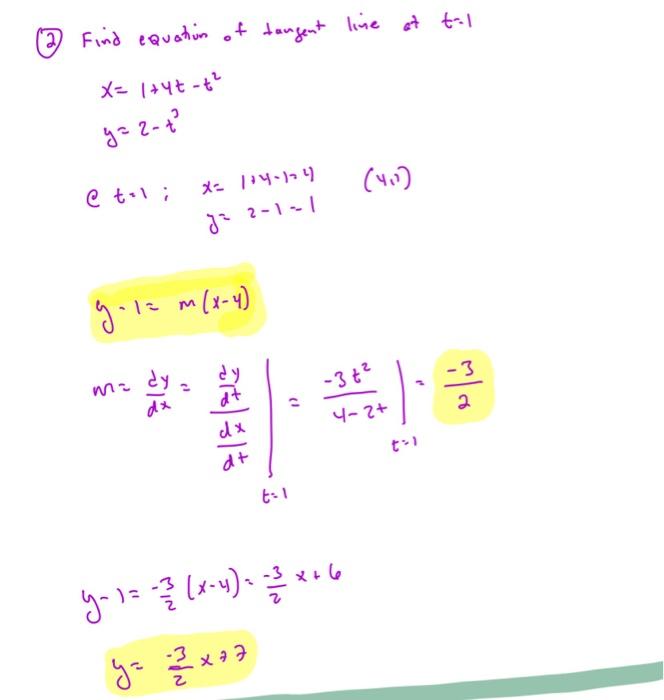 ② Find equation of tangent line at t=1
x= 1+4t-t²
y= 2-t³
@ t=1 ; x= 1+4-1=4 (4,1)
y= 2-1=1
y-1= m(x-4)
m= dy/dx = (dy/dt)/(dx/dt) |t=1 = -3t²/(4-2t) |t=1 = -3/2
y-1= -3/2 (x-4)= -3/2 x+6
y= -3/2 x+7